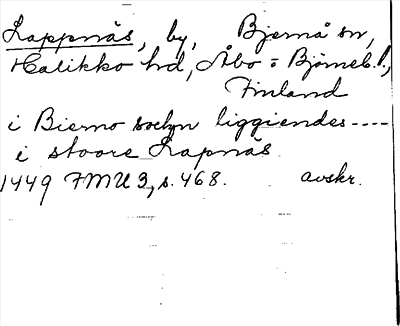 Lappnäs, by, Bjernå sn,
Halikko hd, Åbo = Björneb. l.,
Finland
i Bierno sochn liggiendes----
i stoore Lapnäs
1449 FMU 3, s. 468. avskr.